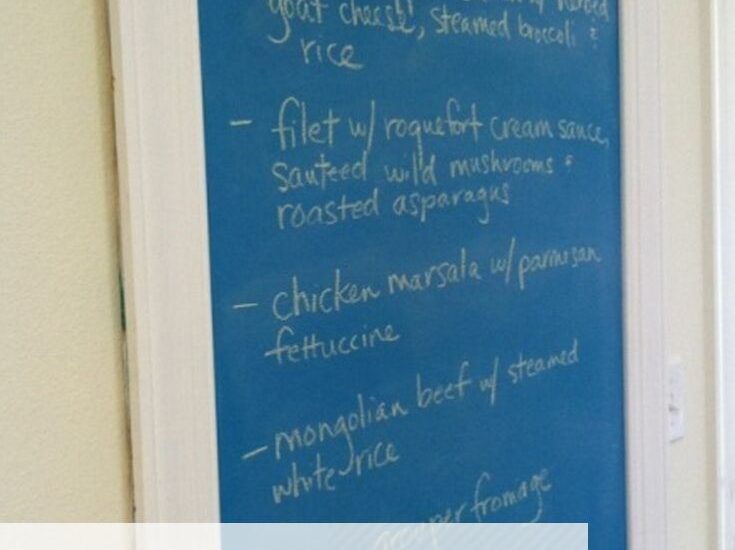 w/ herbed
goat cheese, steamed broccoli &
rice
- filet w/ roquefort cream sauce,
sauteed wild mushrooms &
roasted asparagus
- chicken marsala w/ parmisan
fettuccine
- mongolian beef w/ steamed
white rice
grouper fromage